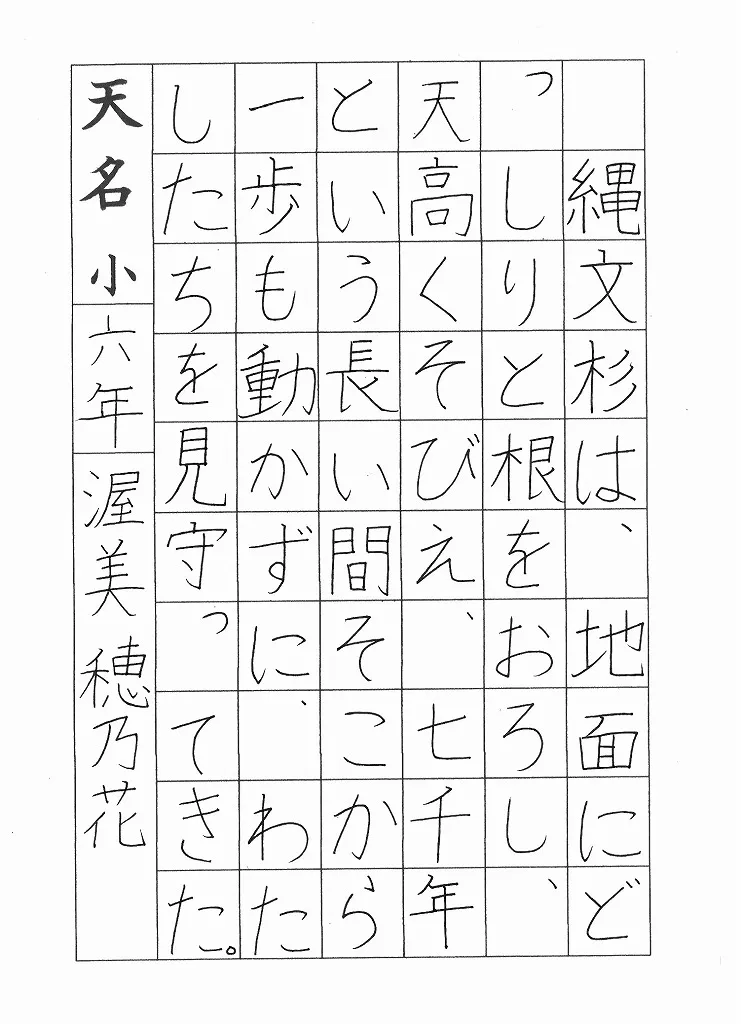 縄文杉は、地面にど
っしりと根をおろし、
天高くそびえ、七千年
という長い間そこから
一歩も動かずに、わた
したちを見守ってきた。
天名小 六年 渥美 穂乃花